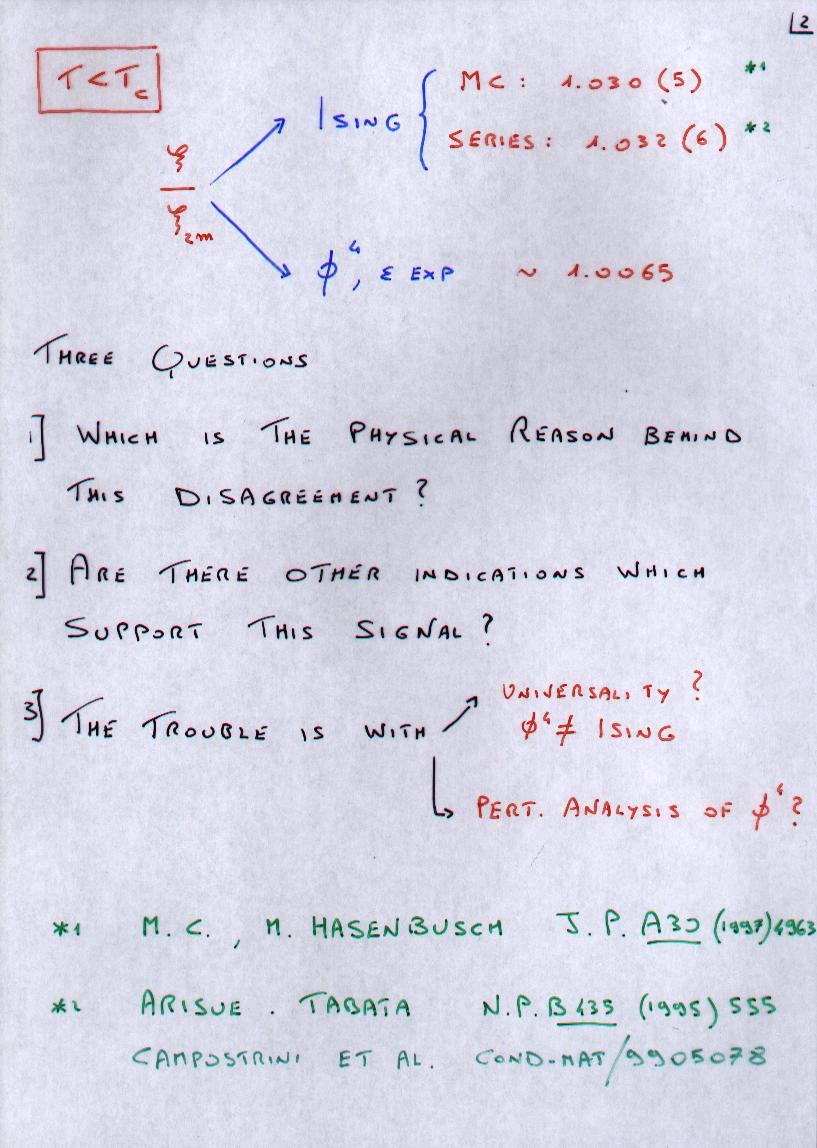 2
T < Tc
ISING { MC : 1.030 (5) *1
SERIES : 1.032 (6) *2
ξ / ξ2m
φ⁴, ε EXP ~ 1.0065
THREE QUESTIONS
1] WHICH IS THE PHYSICAL REASON BEHIND
THIS DISAGREEMENT ?
2] ARE THERE OTHER INDICATIONS WHICH
SUPPORT THIS SIGNAL ?
UNIVERSALITY ?
3] THE TROUBLE IS WITH φ⁴ ≠ ISING
PERT. ANALYSIS OF φ⁴ ?
*1 M. C. , M. HASENBUSCH J. P. A30 (1997) 4963
*2 ARISUE . TABATA N.P. B435 (1995) 555
CAMPOSTRINI ET AL. COND-MAT/9905078